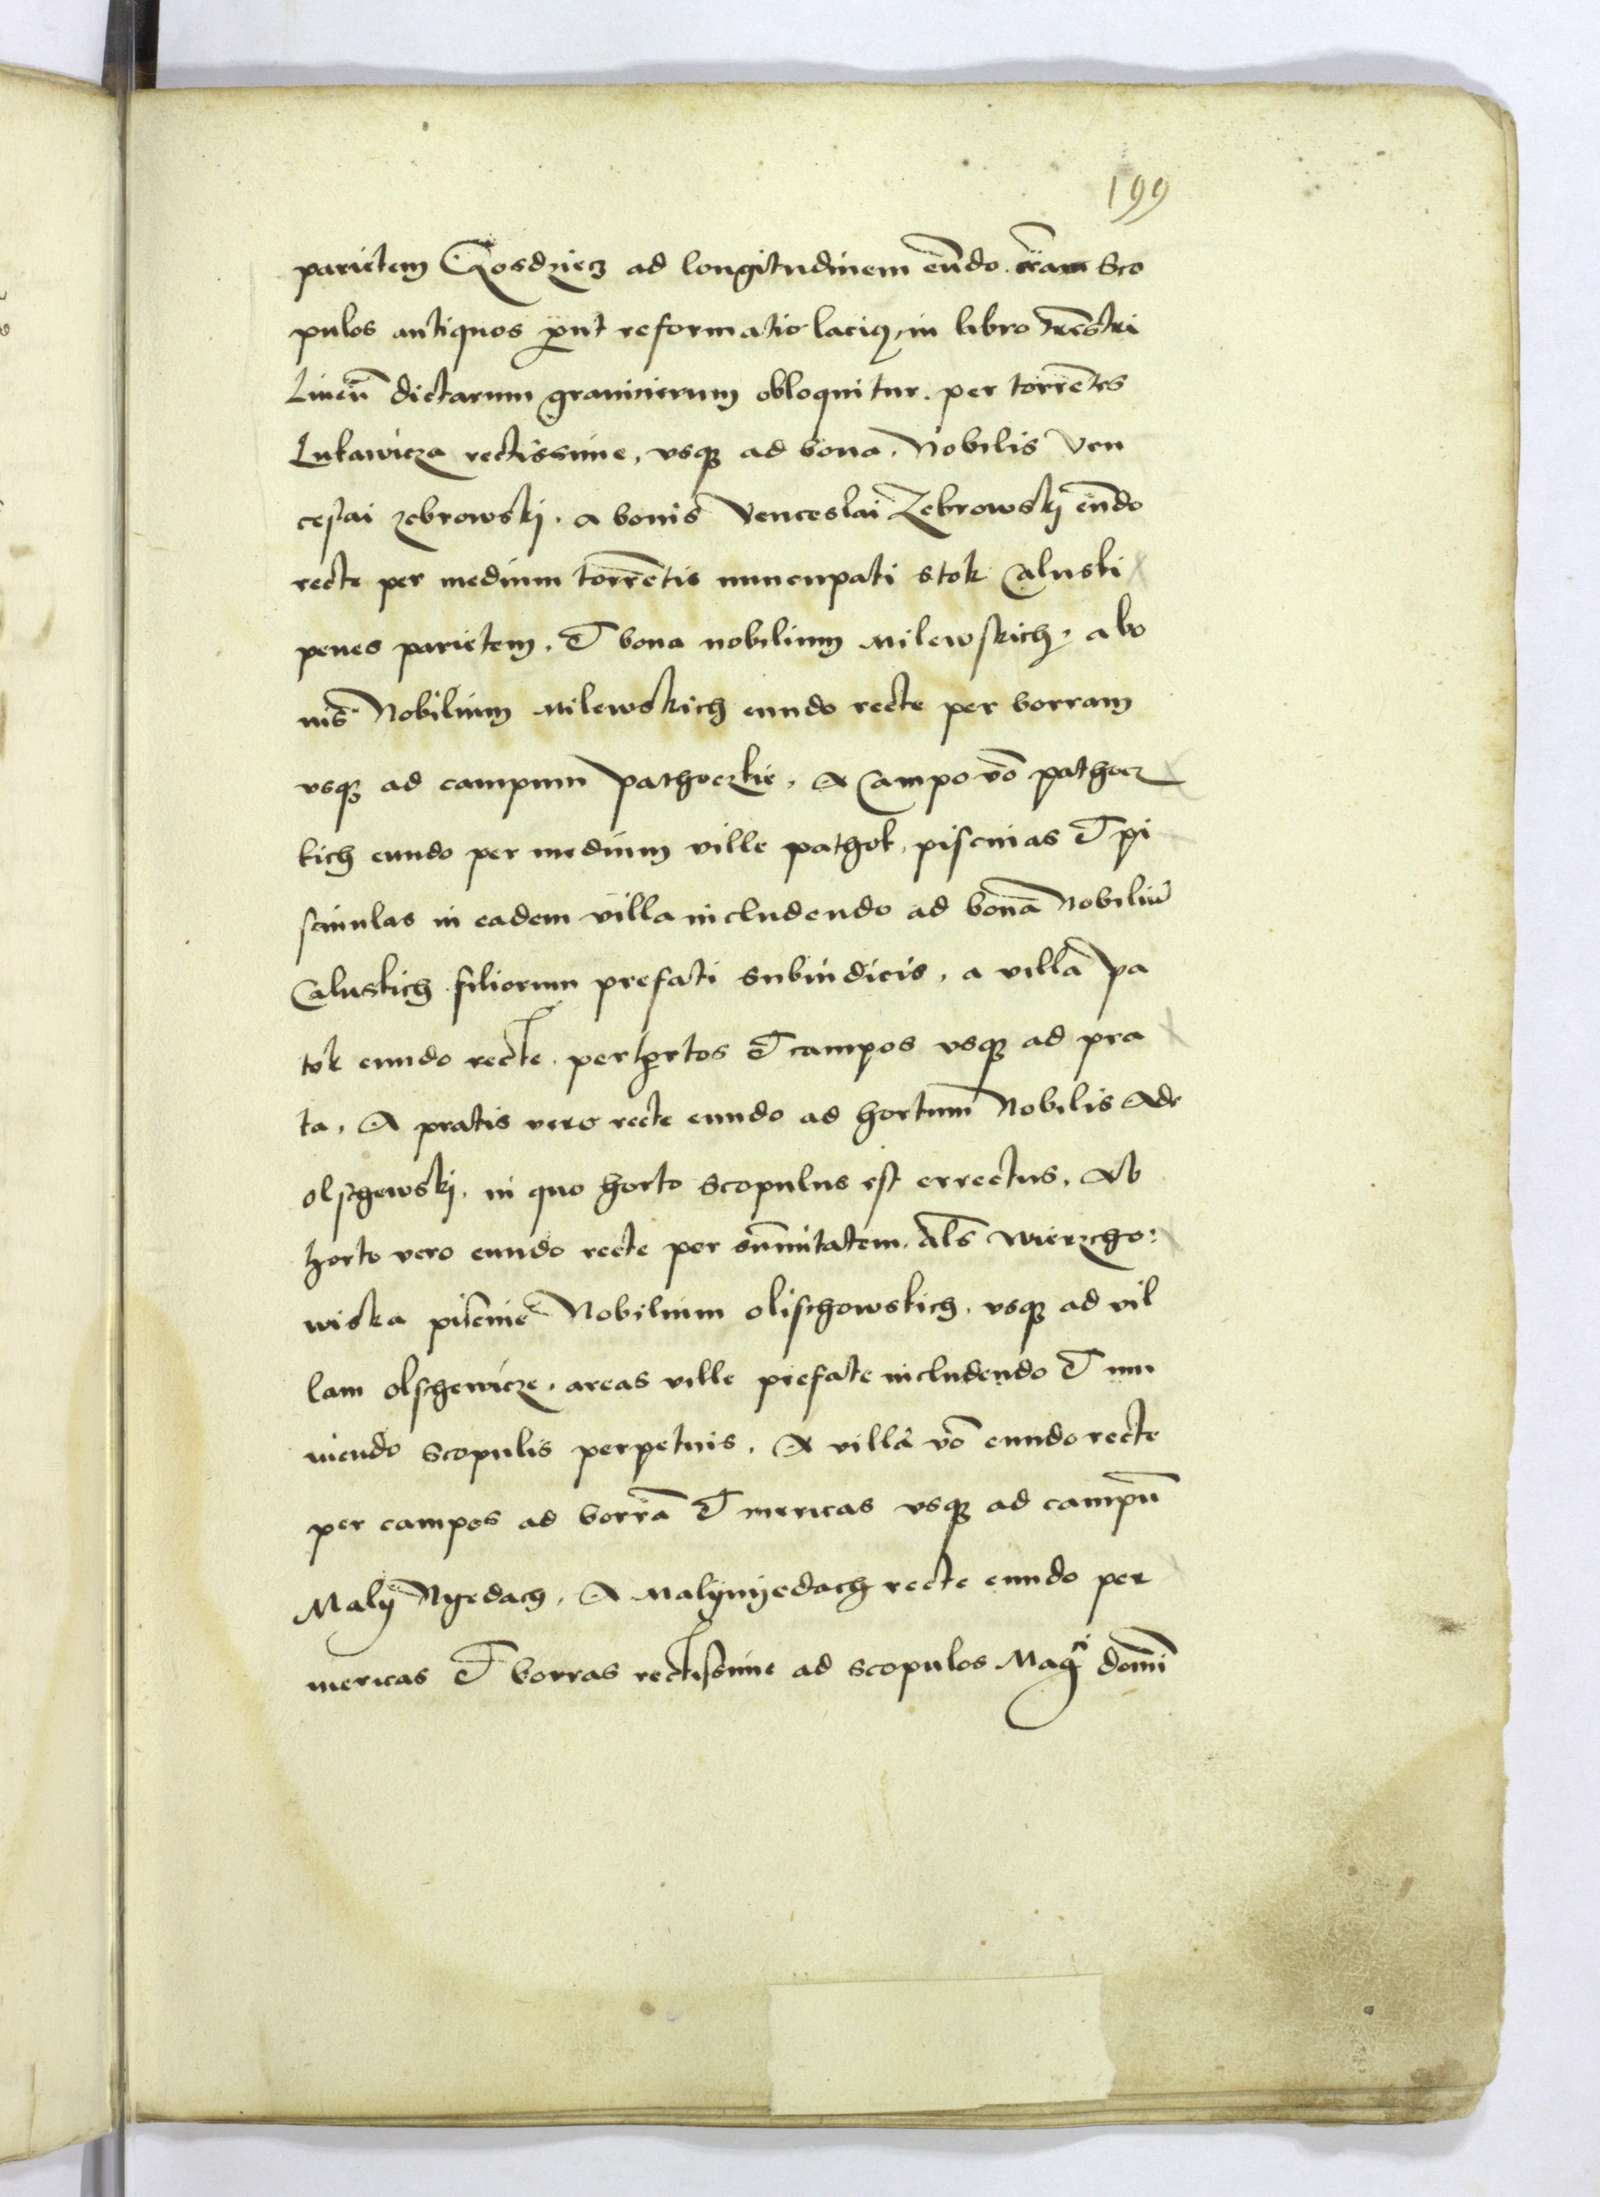 199
parietem Gosdziecz ad longitudinem eūdo Sco
pulos antiquos put reformatio lacius, in libro trēstri
dictarum graniciernm obloquitur. per torrētes
Lukawicza rectissime, vsq ad bona, Nobilis Ven
ceslai zebrowskj. a bonis Venceslai Zebrowskj eūdo
recte per medium torrētis nuncupati stok Caluski
penes parietem, Et bona nobilium Milewskich, a bo
nis Nobilium Milewskich eundo recte per borram
vsq ad campum pathoczkie, A Campo vo pathocz
kich eundo per medium ville pathok, piscinas Et pi
scinulas in eadem villa includendo ad bona Nobiliū
Caluskich filiorum prefati subiudicis, a villa pa
tok eundo recte. per hortos Et campos vsq ad pra
ta, A pratis vero recte eundo ad hortum Nobilis Adr
olschewskj, in quo horto scopulus est errectus, Ab
horto vero eundo recte per sūmitatem, als wierzcho:
wiska piscine Nobilium olischowskich, vsq ad vil
lam olschewicze, areas ville prefate includendo Et mu
niendo scopulis perpetuis, A villa vo eundo recte
per campos ad borrā Et mericas vsq ad campū
Maly Nyedach, A Malynyedach recte eundo per
mericas Et borras rectissime ad scopulos Magci domī